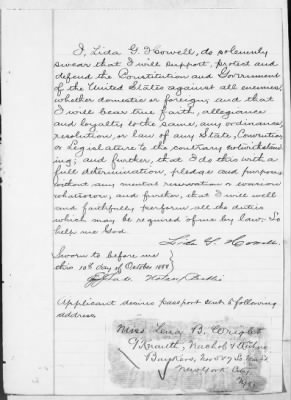 I, Lida G. Howell, do solemnly
swear that I will support, protect and
defend the Constitution and Government
of the United States against all enemies,
whether domestic or foreign; and that
I will bear true faith, allegiance
and loyalty to the same, any ordinance,
resolution, or law of any State, Convention
or Legislature to the contrary notwithstand
ing; and further, that I do this with a
full determination, pledge and purpose,
without any mental reservation or evasion
whatsoever, and further, that I will well
and faithfully perform all the duties
which may be required of me by law. So
help me God.
Lida G. Howell
Sworn to before me
this 10th day of October 1888
Notary Public
Applicant desires passport sent to following
address
Miss Lena B. Wright
Knauth, Nachod & Kühne
Bankers,
New York City
N.Y.